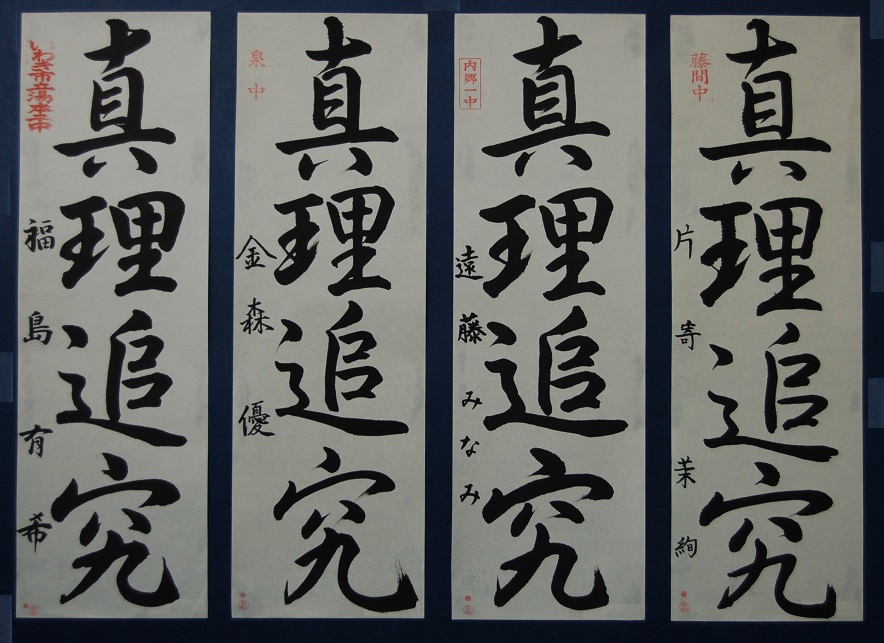 藤間中
真理追究
片寄茉絢
内郷一中
真理追究
遠藤みなみ
泉中
真理追究
金森優
いわき市立湯本一中
真理追究
福島有希